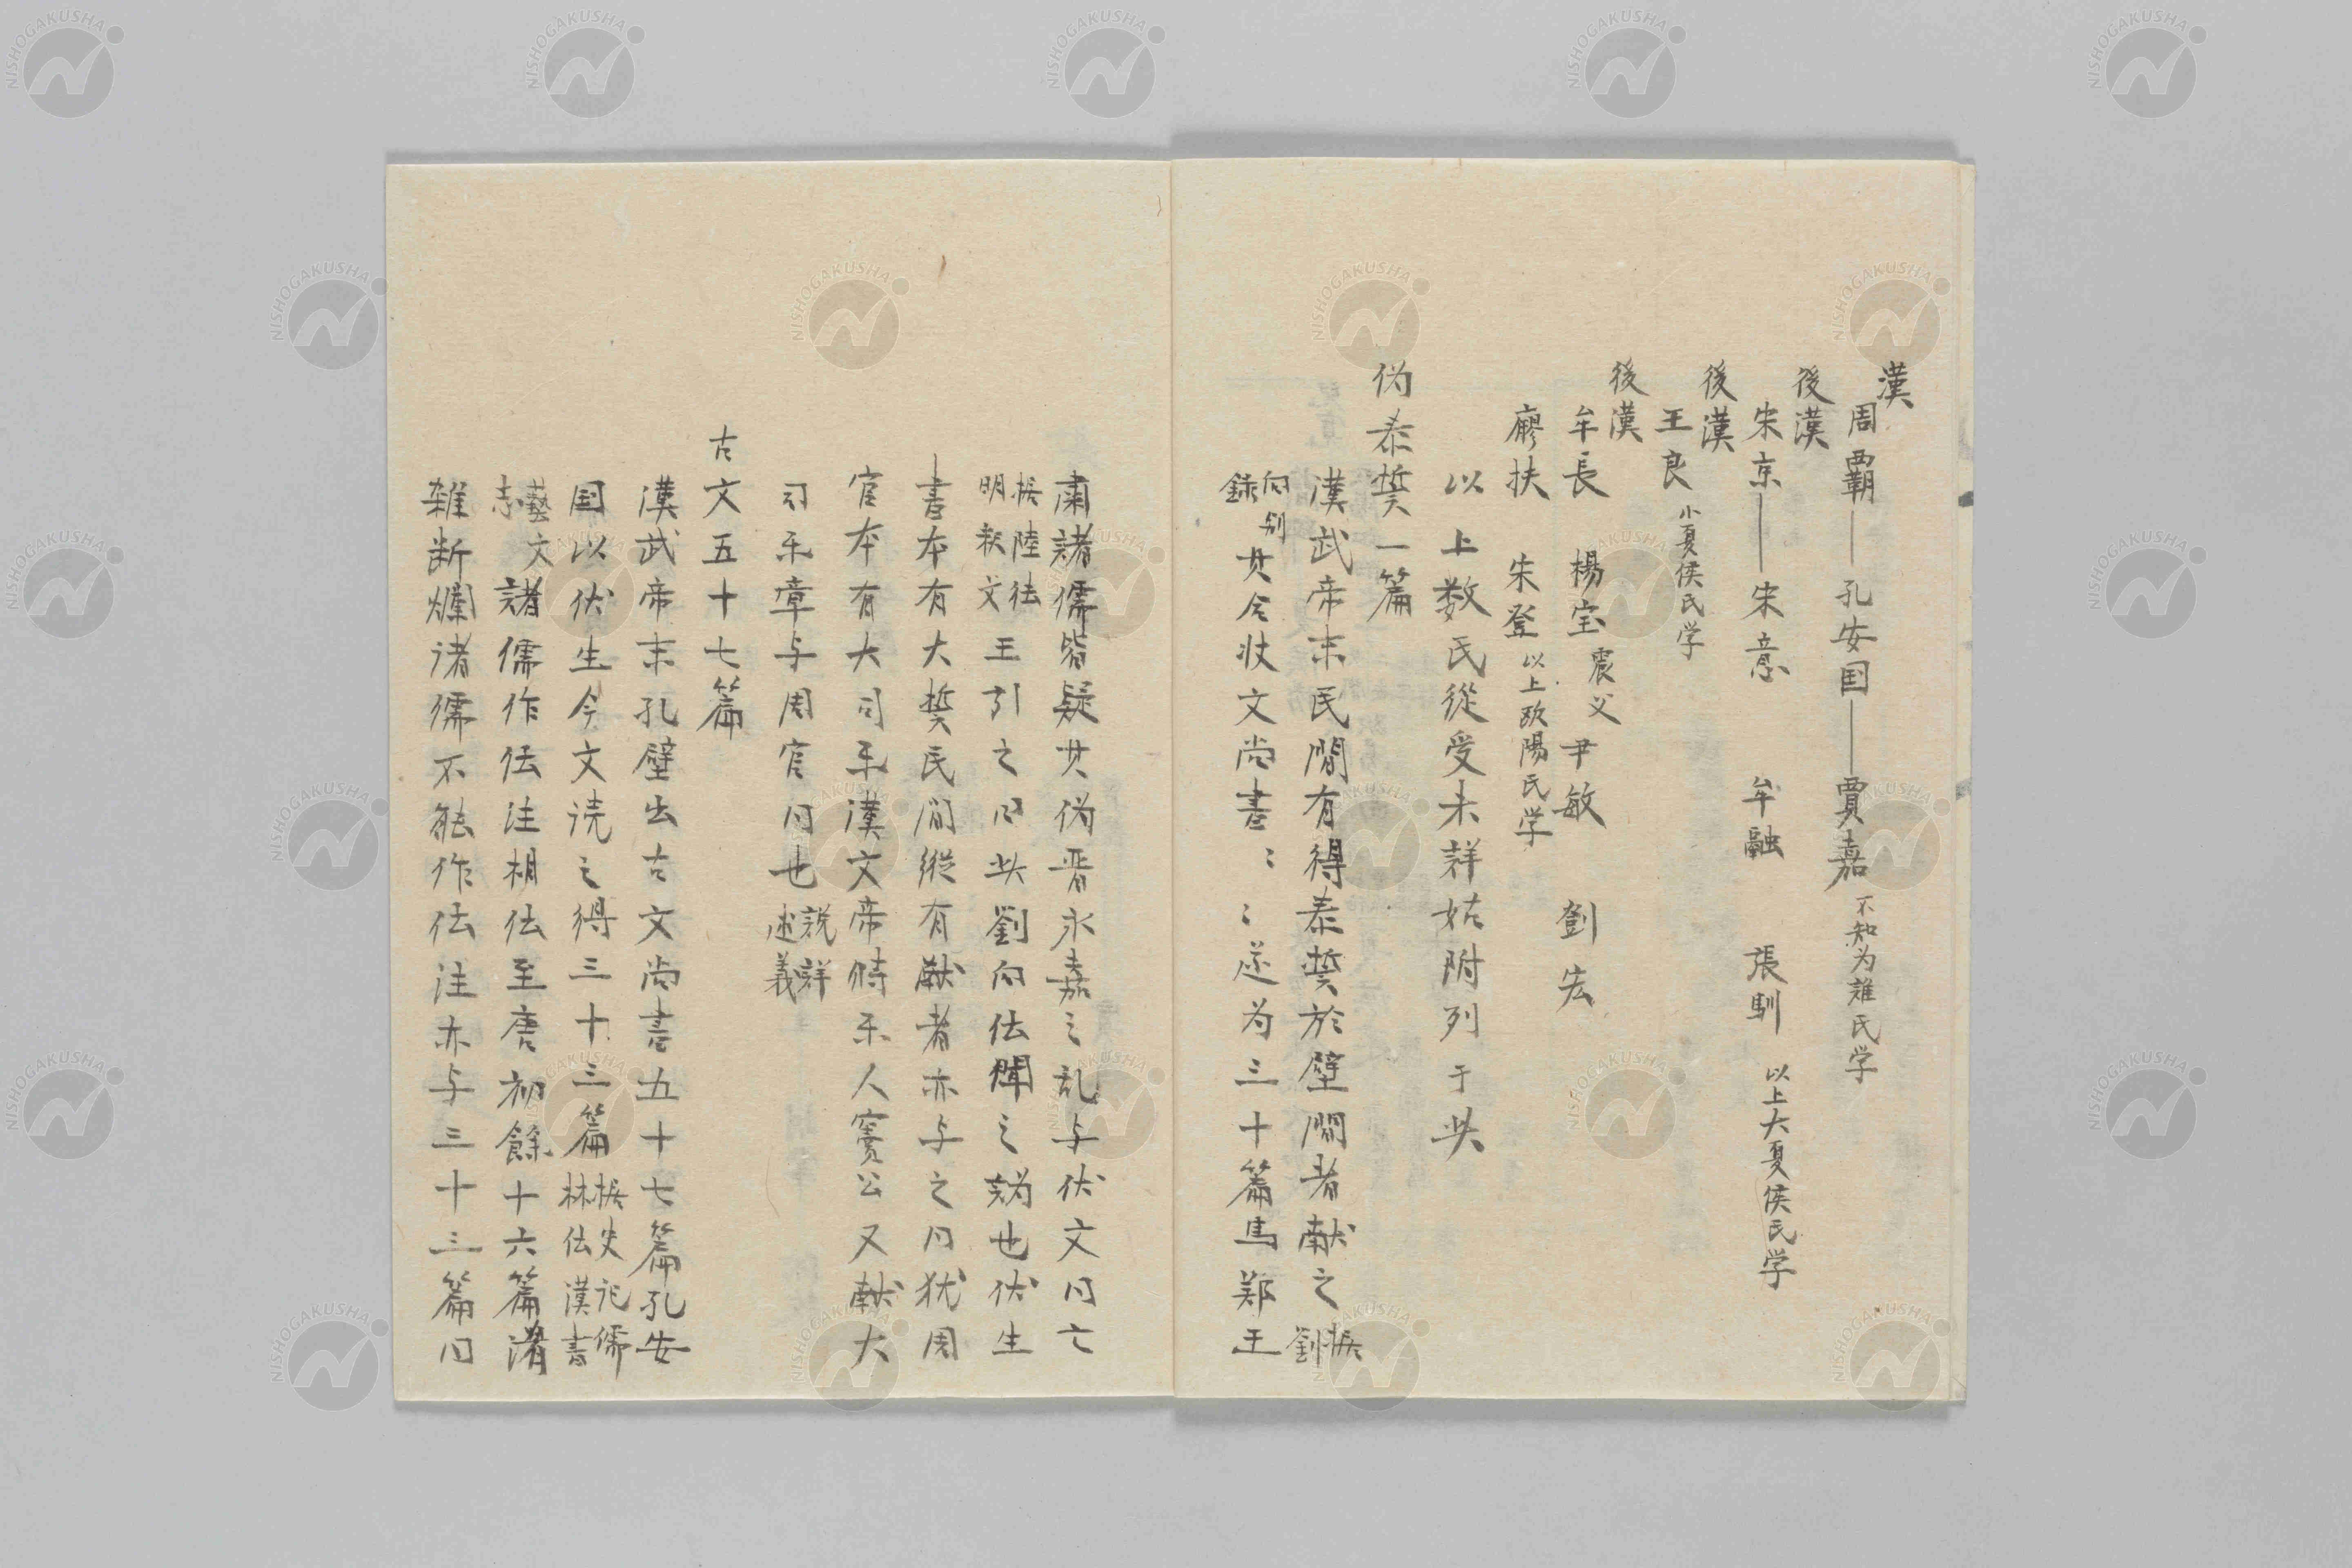 漢
周覇――孔安国――賈嘉 不知为誰氏学
後漢
朱京――宋意 牟融 張馴 以上大夏侯氏学
後漢
王良 小夏侯氏学
後漢
牟長 楊宝 震父 尹敏 劉宏
廖扶 朱登 以上欧陽氏学
以上数氏從受未詳姑附列于此
伪泰誓一篇
漢武帝末民間有得泰誓於壁間者献之 拠劉
向別録 其合伏文尚書〻〻遂为三十篇馬郑王
粛諸儒皆疑其伪晋永嘉之乱与伏文同亡
拠陸徳明釈文 王引之曰此劉向伝聞之譌也伏生
書本有大誓民间縦有献者亦与之同犹周
官本有大司乐漢文帝時乐人竇公又献大
司乐章与周官同也 説詳述義
古文五十七篇
漢武帝末孔壁出古文尚書五十七篇孔安
国以伏生今文读之得三十三篇 拠史记儒林伝漢書
藝文志 諸儒作伝注相伝至唐初餘十六篇淆
雑断爛诸儒不能作伝注亦与三十三篇同
NISHOGAKUSHA